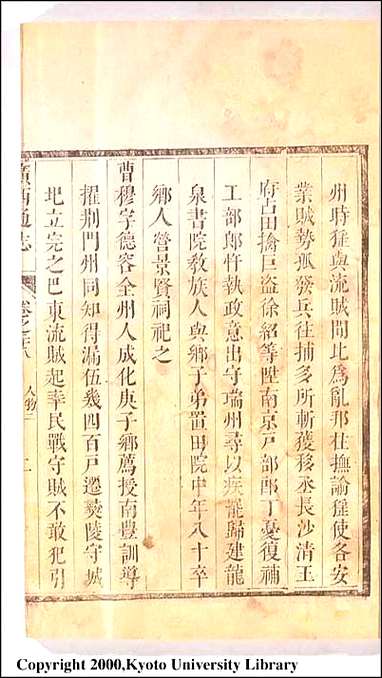 州時猺與流賊間比爲亂邢壯撫諭猺使各安
業賊勢孤發兵往捕多所斬獲移丞長沙清王
府占田擒巨盜徐紹等陞南京戸部郎丁憂復補
工部郎忤執政意出守瑞州尋以疾罷歸建龍
泉書院教族人與鄉子弟置田院中年八十卒
鄉人營景賢祠祀之
曹穆字德容全州人成化庚子鄉薦授南豊訓導
擢荆門州同知得漏伍幾四百戸遷陵守城
圯立完之巴東流賊起率民戰守賊不敢犯引
廣西通志
卷之
人物
Copyright 2000,Kyoto University Library